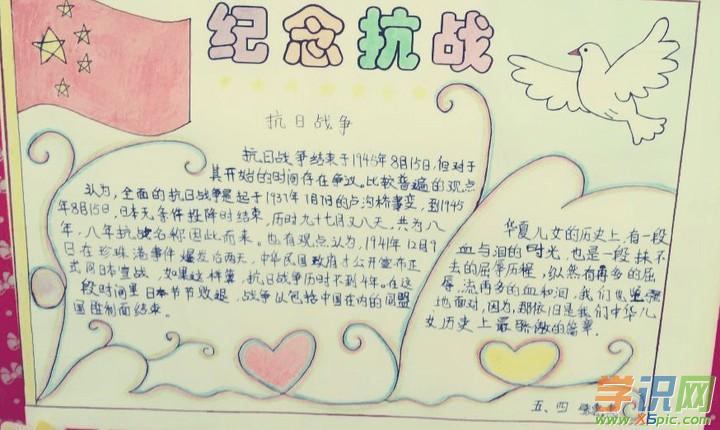 纪念抗战
抗日战争
抗日战争结束于1945年8月15日,但对于
其开始的时间存在争议。比较普遍的观点
认为,全面的抗日战争是起于1937年7月7日的卢沟桥事变,到1945
年8月15日,日本无条件投降时结束,历时九十七月又八天,共为八
年,八年抗战名称因此而来。也有观点认为,1941年12月9
日在珍珠港事件爆发后两天,中华民国政府才公开宣布正
式向日本宣战,如果这样算,抗日战争历时不到4年。在这
段时间里日本节节败退,战争以包括中国在内的同盟
国胜利而结束。
华夏儿女的历史上,有一段
血与泪的时光,也是一段抹不
去的屈辱历程,纵然有再多的屈
辱,流再多的血和泪,我们也坚强
地面对,因为,那依旧是我们中华儿
女历史上最骄傲的篇章.
五、四
学识网
www.x5pic.com